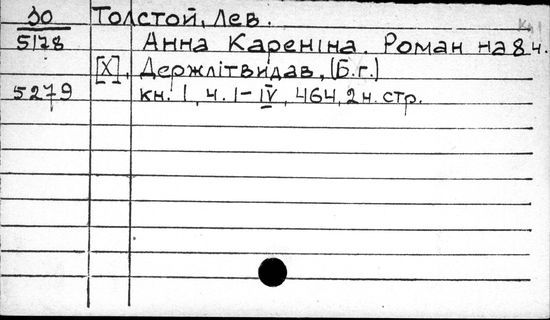 30 Толстой, Лев.
5178 Анна Кареніна. Роман на 8 ч.
[Х], Держлітвидав, (Б.г.)
5279 кн. I, ч. I-IV, 464, 2 н. стр.